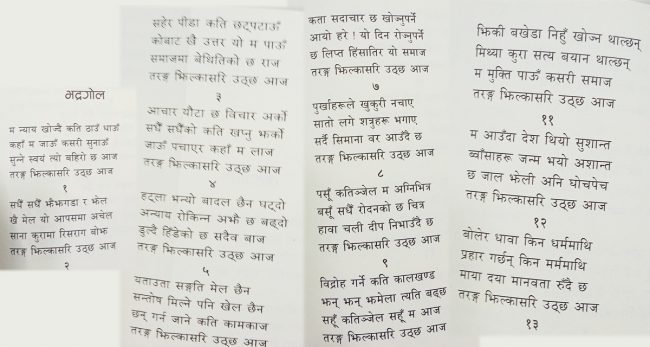 भद्रगोल
म न्याय खोज्दै कति ठाउँ धाउँ
कहाँ म जाऊँ कसरी सुनाऊँ
सुन्ने स्वयं त्यो बहिरो छ आज
तरङ्ग झिल्कासरि उठ्छ आज
१
सधैँ सधैँ झैझगडा र झेल
खै मेल यो आपसमा अचेल
साना कुरामा रिसराग बोभ
तरङ्ग झिल्कासरि उठ्छ आज
२
सहेर पीडा कति छट्पटाऊँ
कोबाट खै उत्तर यो म पाऊँ
समाजमा बेथितिको छ राज
तरङ्ग झिल्कासरि उठ्छ आज
३
आचार यौटा छ विचार अर्को
सधैँ सधैँको कति खप्नु झर्को
जाऊँ पचाएर कहाँ म लाज
तरङ्ग झिल्कासरि उठ्छ आज
४
हट्ला भन्यो बादल छैन घट्दो
अन्याय रोकिन्न अझै छ बढ्दो
डुल्दै हिँडेको छ सदैव बाज
तरङ्ग झिल्कासरि उठ्छ आज
५
यताउता सङ्गति मेल छैन
सन्तोष मिल्ने पनि खेल छैन
छन् गर्न जाने कति कामकाज
तरङ्ग झिल्कासरि उठ्छ आज
कता सदाचार छ खोज्नुपर्ने
आयो हरे ! यो दिन रोज्नुपर्ने
छ लिप्त हिंसातिर यो समाज
तरङ्ग झिल्कासरि उठ्छ आज
७
पुर्खाहरूले खुकुरी नचाए
सातो लगे शत्रुहरू भगाए
सर्दै सिमाना वर आउँदै छ
तरङ्ग झिल्कासरि उठ्छ आज
८
पसूँ कतिञ्जेल म अग्निभित्र
बसूँ सधैँ रोदनको छ चित्र
हावा चली दीप निभाउँदै छ
तरङ्ग झिल्कासरि उठ्छ आज
९
विद्रोह गर्ने कति कालखण्ड
झन् झन् झमेला त्यति बढ्छ
सहूँ कतिञ्जेल सहूँ म आज
तरङ्ग झिल्कासरि उठ्छ आज
झिकी बखेडा निहुँ खोज्न थाल्छन्
मिथ्या कुरा सत्य बयान थाल्छन्
म मुक्ति पाऊँ कसरी समाज
तरङ्ग झिल्कासरि उठ्छ आज
११
म आउँदा देश थियो सुशान्त
ब्वाँसाहरू जन्म भयो अशान्त
छ जाल झेली अनि घोचपेच
तरङ्ग झिल्कासरि उठ्छ आज
१२
बोलेर धावा किन धर्ममाथि
प्रहार गर्छन् किन मर्ममाथि
माया दया मानवता रुँदै छ
तरङ्ग झिल्कासरि उठ्छ आज
१३